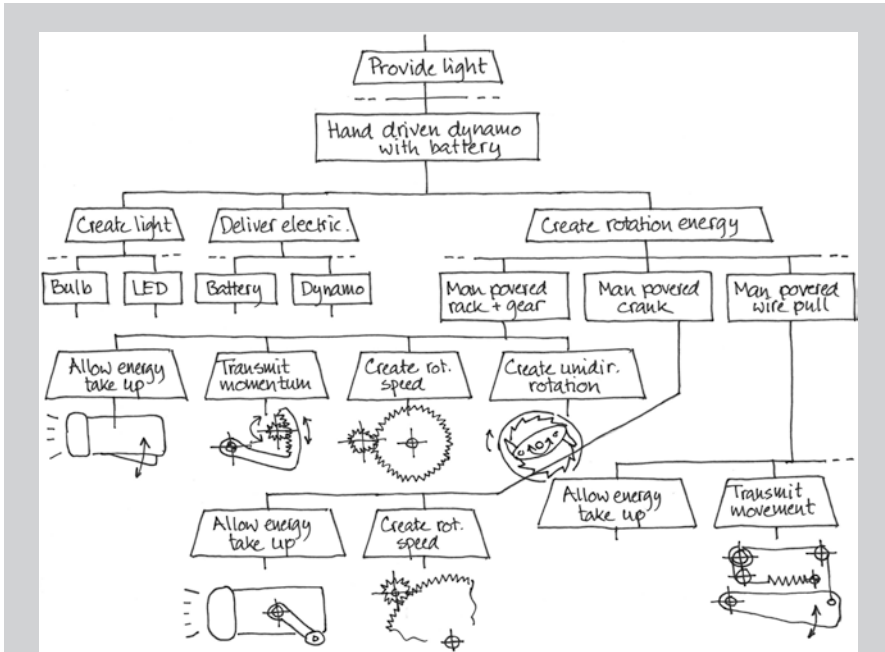 Provide light
Hand driven dynamo
with battery
Create light
Deliver electric.
Create rotation energy
Bulb
LED
Battery
Dynamo
Man povered
rack + gear
Man povered
crank
Man povered
wire pull
Allow energy
take up
Transmit
momentum
Create rot.
speed
Create unidir.
rotation
Allow energy
take up
Create rot.
speed
Allow energy
take up
Transmit
movement